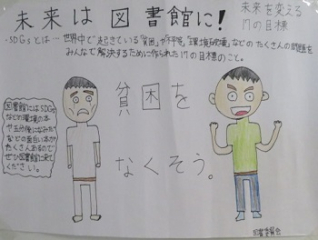 未来は図書館に!
未来を変える
17の目標
・SDGsとは…世界中で起きている"貧困"や"不平等"、"環境破壊"などのたくさんの問題を
みんなで解決するために作られた17の目標のこと。
図書館にはSDGs
などの環境の本
などの面白い本が
たくさんあるので
ぜひ図書館に来て
ください。
貧困を
なくそう。
図書委員会